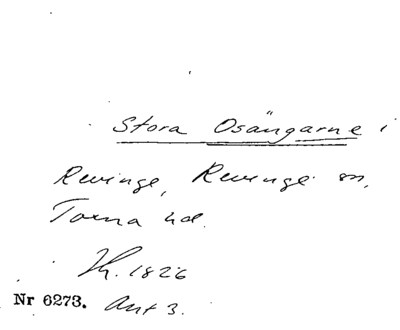 Stora Osängarne i
Revinge, Revinge sn,
Torna hd.
Th. 1826
Nr 6273. Ant 3.